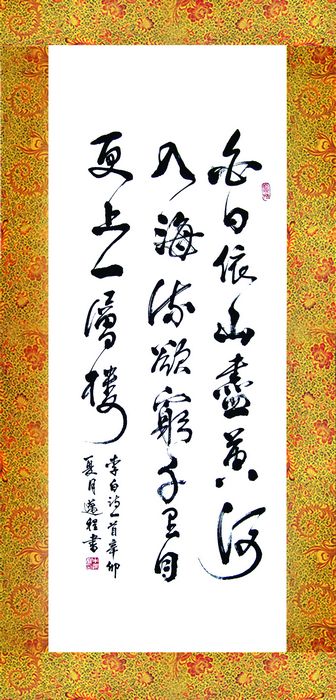 白日依山盡黄河
入海流欲窮千里目
更上一層樓
李白诗一首辛卯
夏月書